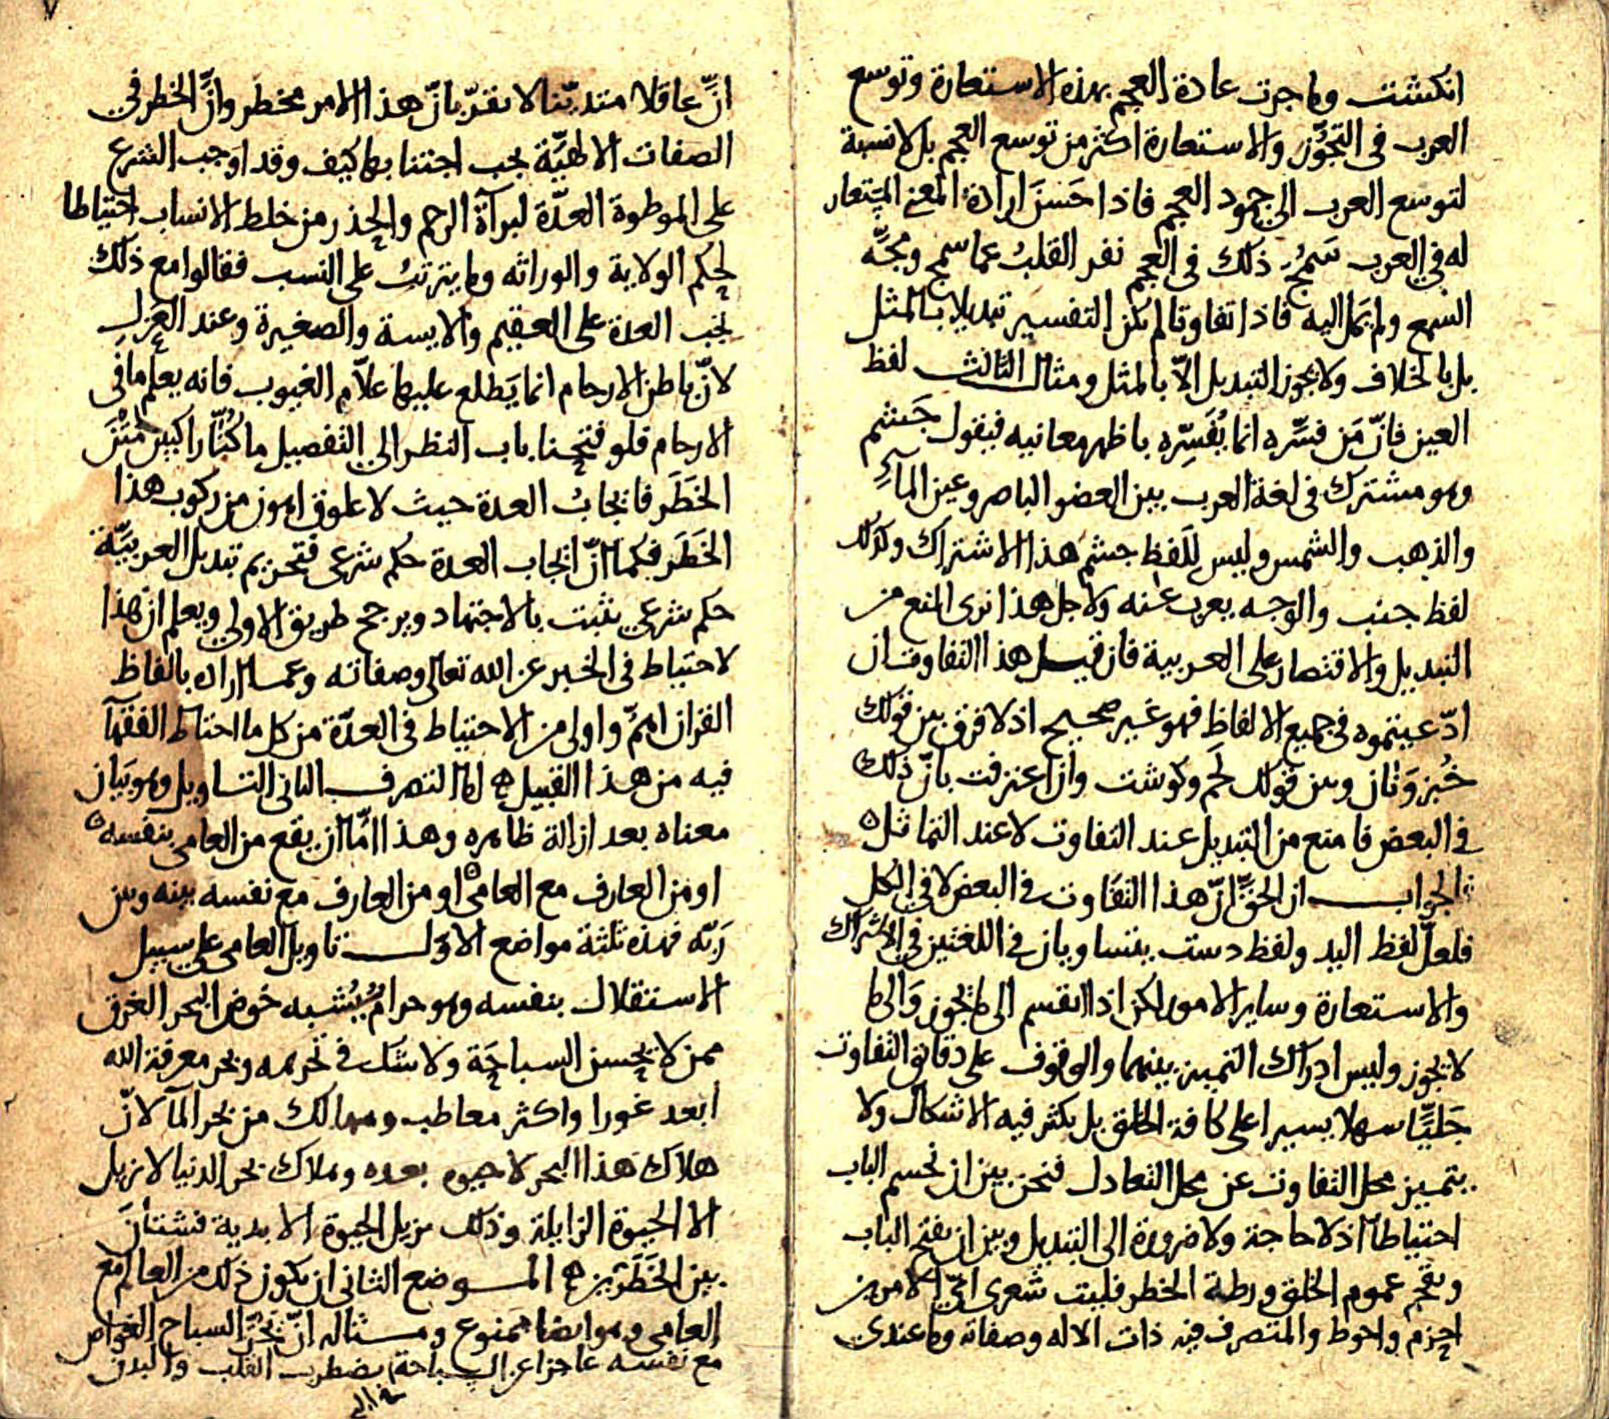 انكشت وما جرت عادة العجم بهذه الاستعارة وتوسع
العرب فى التجوّز والاستعارة اكثر من توسع العجم بل لا نسبة
لتوسع العرب الى جمود العجم فاذا حَسَنَ ارادة المعنى المستعار
له في العرب سَمُجَ ذلك فى العجم نفر القلبُ عما سمج ومجّه
السمع ولم يمل اليه فاذا تفاوتا لم يكن التفسير تبديلا بالمثل
بل بالخلاف ولا يجوز التبديل الاّ بالمثل ومثال الثالث لفظ
العين فانّ مَن فسّره انما يُفَسِّره باظهر معانيه فيقول جَشم
وهو مشترك فى لغة العرب بين العضو الباصر وعين الماء
والذهب والشمس وليس للفظ جشم هذا الاشتراك وكذلك
لفظ جنب والوجه يقرب منه ولاجل هذا نرى المنع من
التبديل والاقتصار على العربية فان قيل هذا التفاوت ان
ادّعيتموه فى جميع الالفاظ فهو غير صحيح اذ لا فرق بين قولك
خُبز وَنان وبين قولك لَحم وكوشت وان اعترفت بانّ ذلك
فى البعض فامنع من التبديل عند التفاوت لا عند التماثل
الجواب ان الحقّ انّ هذا التفاوت فى البعض لا فى الكل
فلعلّ لفظ اليد ولفظ دست يتساويان فى اللغتين فى الاشتراك
والاستعارة وساير الامور لكن اذا انقسم الى ما يجوز وَالى ما
لا يجوز وليس ادراك التمييز بينهما والوقوف على دقائق التفاوت
جَليًّا سهلا يسيرا على كافة الخلق بل يكثر فيه الاشكال ولا
يتميز محل التفاوت عن محل التعادل فنحن بين ان نحسم الباب
احتياطا اذ لا حاجة ولا ضرورة الى التبديل وبين ان نفتح الباب
ونقحم عموم الخلق ورطة الخطر فليت شعرى اىّ الامرين
احزم واحوط والمتصرف فيه ذات الاله وصفاته وما عندى
٧
انّ عاقلا متديّنا لا يقرّ بانّ هذا الامر مخطر وانّ الخطر فى
الصفات الالهيّة يجب اجتنابها كيف وقد اوجب الشرع
على الموطوة العدّة لبرآة الرحم والحذر من خلط الانساب احتياطا
لحكم الولاية والوراثه وما يترتبُ على النسب فقالوا مع ذلك
يجب العدة على العقيم والايسة والصغيرة وعند العزل
لانّ باطن الارحام انما يَطلع عليها علاّم الغيوب فانه يعلم ما فى
الارحام فلو فتحنا باب النظر الى التفصيل ما كُنّا راكبين مَتْنَ
الخَطَر فايجابُ العدة حيث لا علوق اهون من ركوب هذا
الخَطَر فكما انّ ايجاب العدة حكم شرعى فتحريم تبديل العربيّة
حكم شرعى يثبت بالاجتهاد ويرجح طريق الاولى ويعلم ان هذا
لاحتياط فى الخبر عن الله تعالى وصفاته وعما اراده بالفاظ
القران اهمّ واولى من الاحتياط فى العدّة من كل ما احتاط الفقهآ
فيه من هذا القبيل اما التصرف الثانى التاويل وهو بَيان
معناه بعد ازالة ظاهره وهذا امّا ان يقع من العامى بنفسه
او من العارف مع العامى او من العارف مع نفسه بينه وبين
رَبّه فهذه ثلثة مواضع الاوّل تاويل العامى على سبيل
الاستقلال بنفسه وهو حرام يُشبه خوض البحر المغرق
ممن لا يحسن السباحَة ولا شك فى تحريمه وبحر معرفة الله
ابعد غورا واكثر معاطب ومهالك من بحر المآ لانّ
هلاك هذا البحر لا حيوه بعده وهلاك بحر الدنيا لا يزيل
الا الحيوة الزايلة وذلك يزيل الحيوة الابدية فشتّانَ
بين الخَطَرَين الموضع الثانى ان يكون ذلك من العالم مع
العامى وهو ايضا ممنوع ومثاله انّ يجرّ السباح الغواص
مع نفسه عاجزا عن السباحة مضطرب القلب والبدن